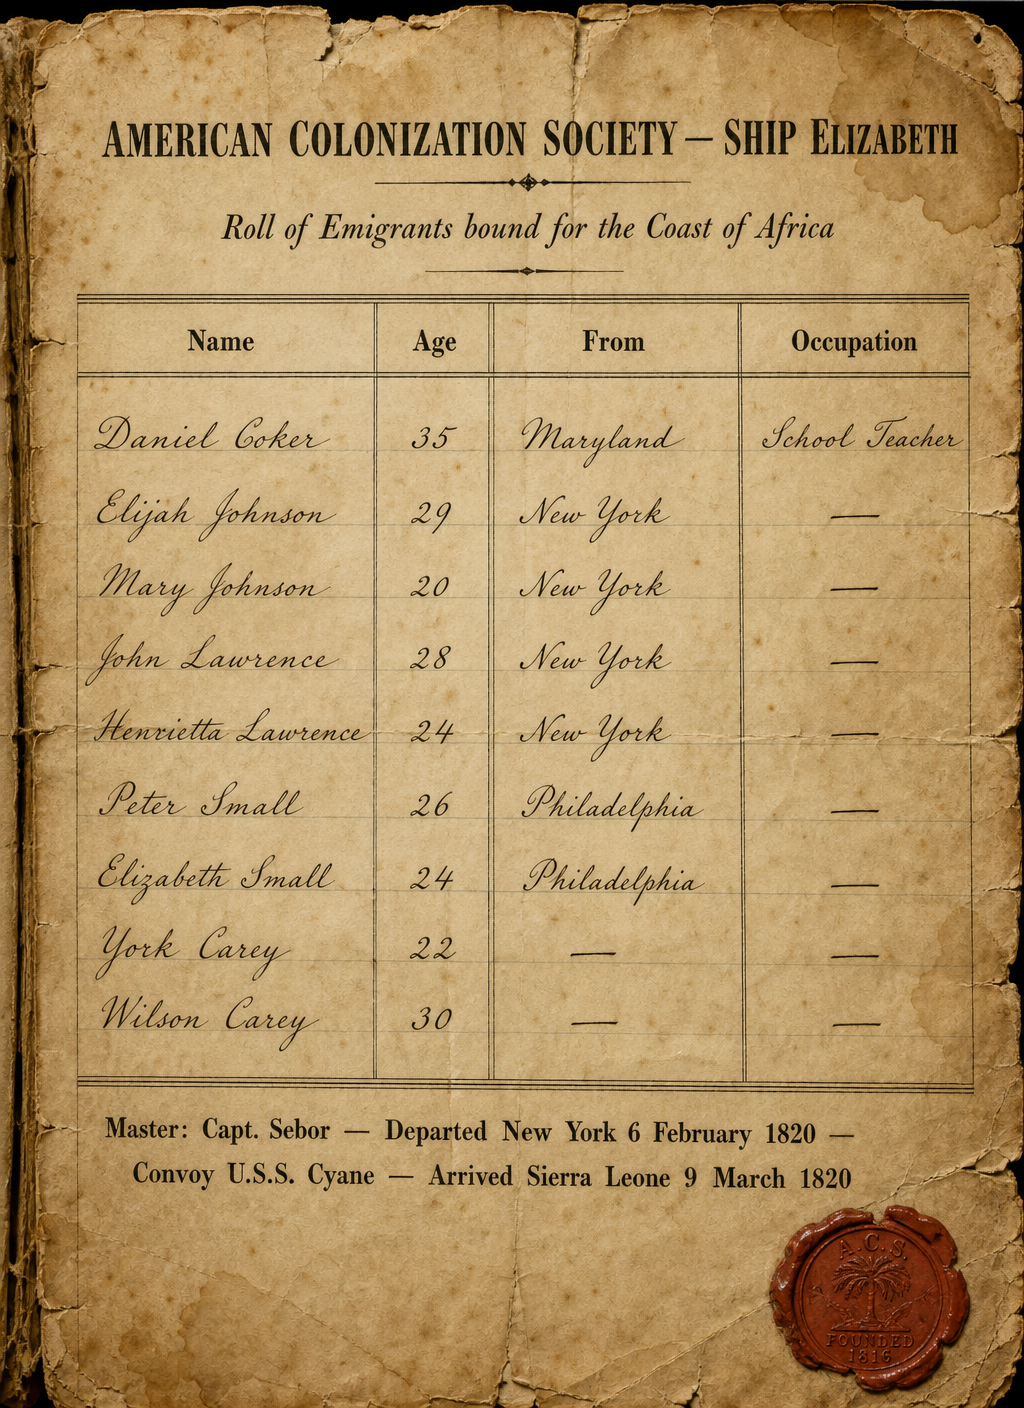 AMERICAN COLONIZATION SOCIETY — SHIP ELIZABETH
Roll of Emigrants bound for the Coast of Africa
Name Age From Occupation
Daniel Coker 35 Maryland School Teacher
Elijah Johnson 29 New York —
Mary Johnson 20 New York —
John Lawrence 28 New York —
Henrietta Lawrence 24 New York —
Peter Small 26 Philadelphia —
Elizabeth Small 24 Philadelphia —
York Carey 22 — —
Wilson Carey 30 — —
Master: Capt. Sebor — Departed New York 6 February 1820 —
Convoy U.S.S. Cyane — Arrived Sierra Leone 9 March 1820
A.C.S.
FOUNDED
1816